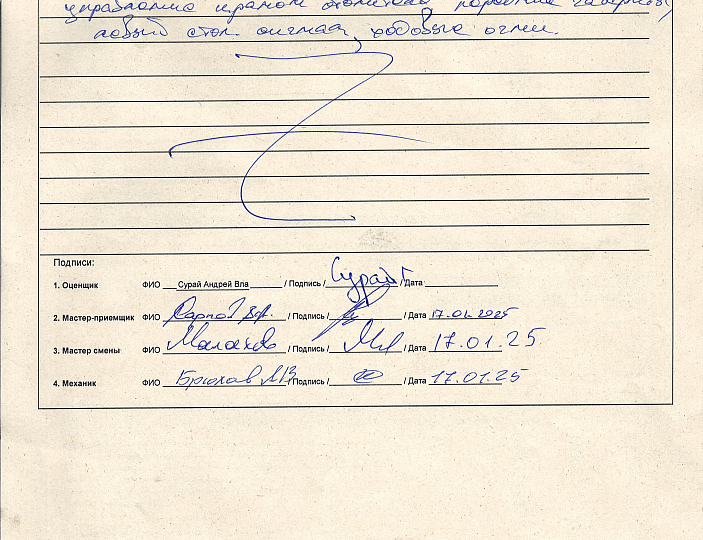 управление краном
левый стоп. сигнал, ходовые огни.
Подписи:
1. Оценщик ФИО Сурай Андрей Вла / Подпись / Сурай / Дата
2. Мастер-приемщик ФИО / Подпись / / Дата 17.01.2025
3. Мастер смены ФИО Малахов / Подпись / / Дата 17.01.25
4. Механик ФИО / Подпись / / Дата 17.01.25